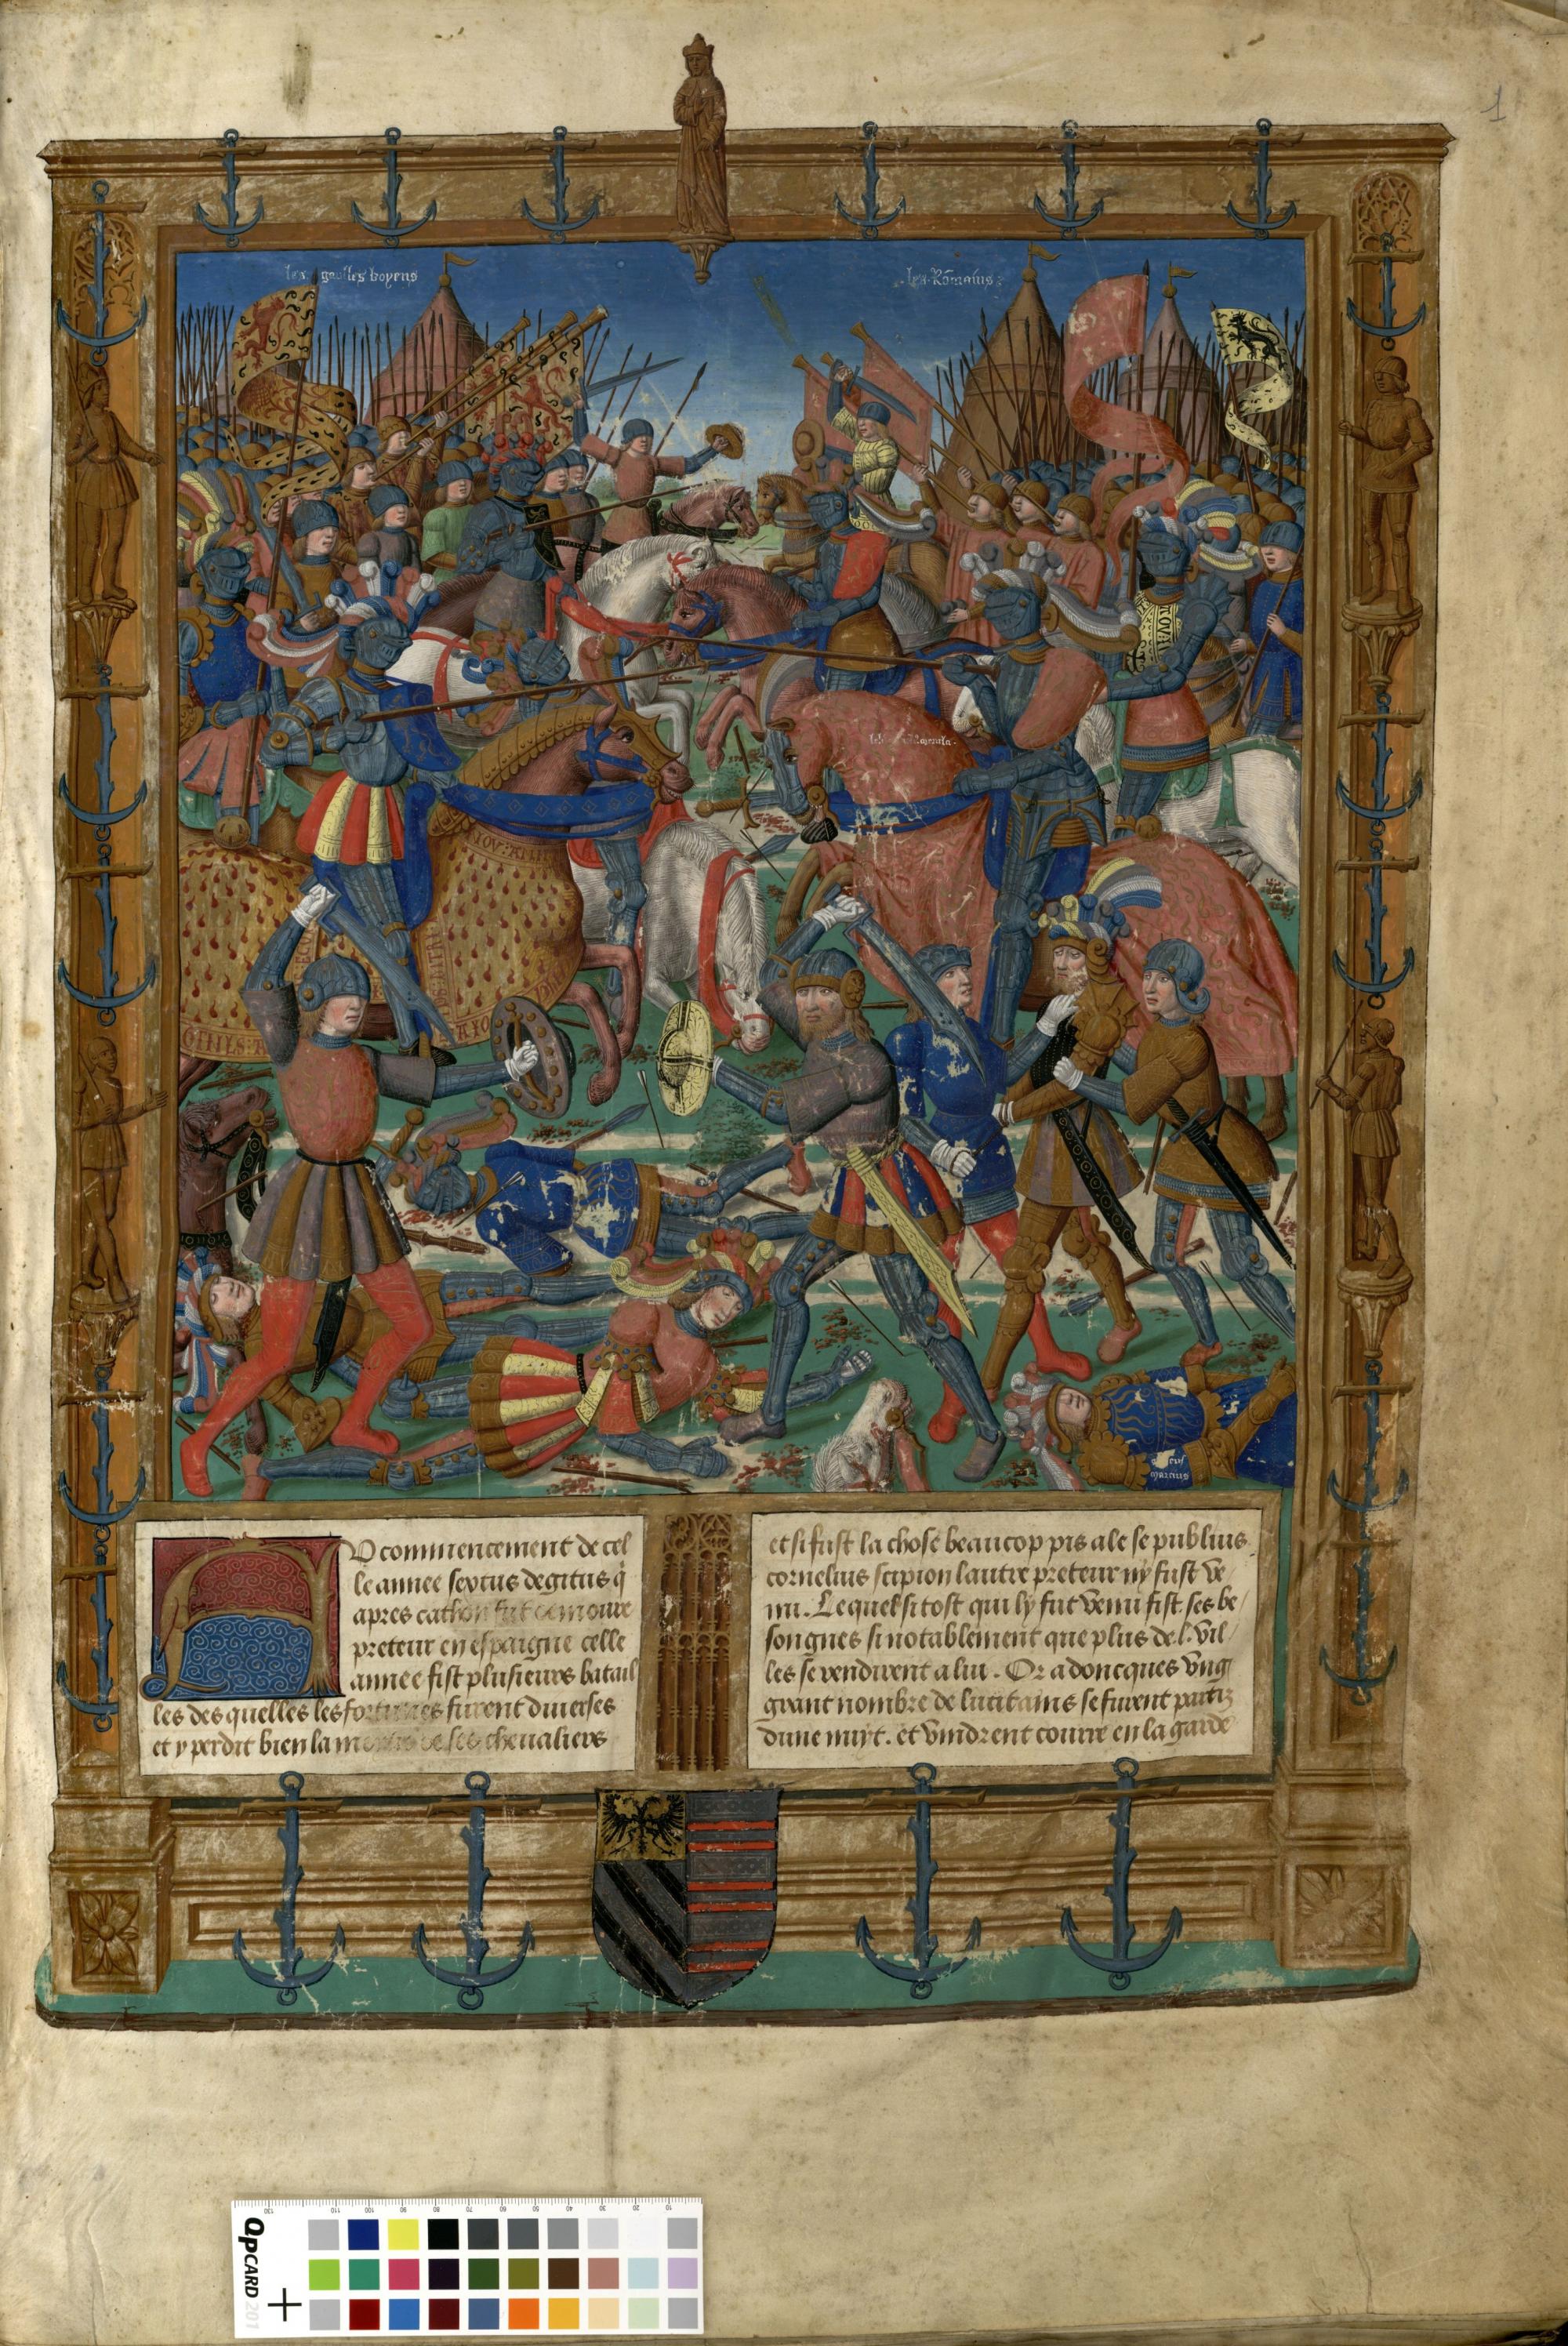 1
les gaulles boyens
les Rōmains
marcius
U commencement de cel
le annee sextus degitus q̇
apres cathon fut demoure
preteur en espaigne celle
annee fist plusieurs batail
les des quelles les fortunes furent diuerses
et y perdit bien la moitie de ses cheualiers
et si fust la chose beaucop pis ale se publius
cornelius scipion lautre preteur ny fust ve
nu. Lequel si tost qui ly fut venu fist ses be
songnes si notablement que plus de .l. vil
les se rendirent a lui. Or adoncques vng
grant nombre de lucitains se furent partiz
dune nuyt. et vindrent courre en la garde
130 110 100 90 80 70 60 50 40 30 20 10
QPCARD 201